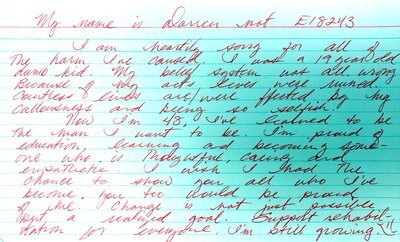 My name is Darren not E18243
I am heartily sorry for all of
the harm I've caused. I was a 19 year old
dumb kid. My belief system was all wrong
Because of my acts lives were ruined.
Countless lives are/were affected by my
callousness and being so selfish.
Now I'm 48, I've learned to be
the man I want to be. I'm proud of
education, learning and becoming some-
one who is thoughtful, caring and
empathetic I wish I had the
chance to show you all who I've
become. You too would be proud
of me Change is not just possible
but a realized goal. Support rehabil-
itation for everyone. I'm still growing